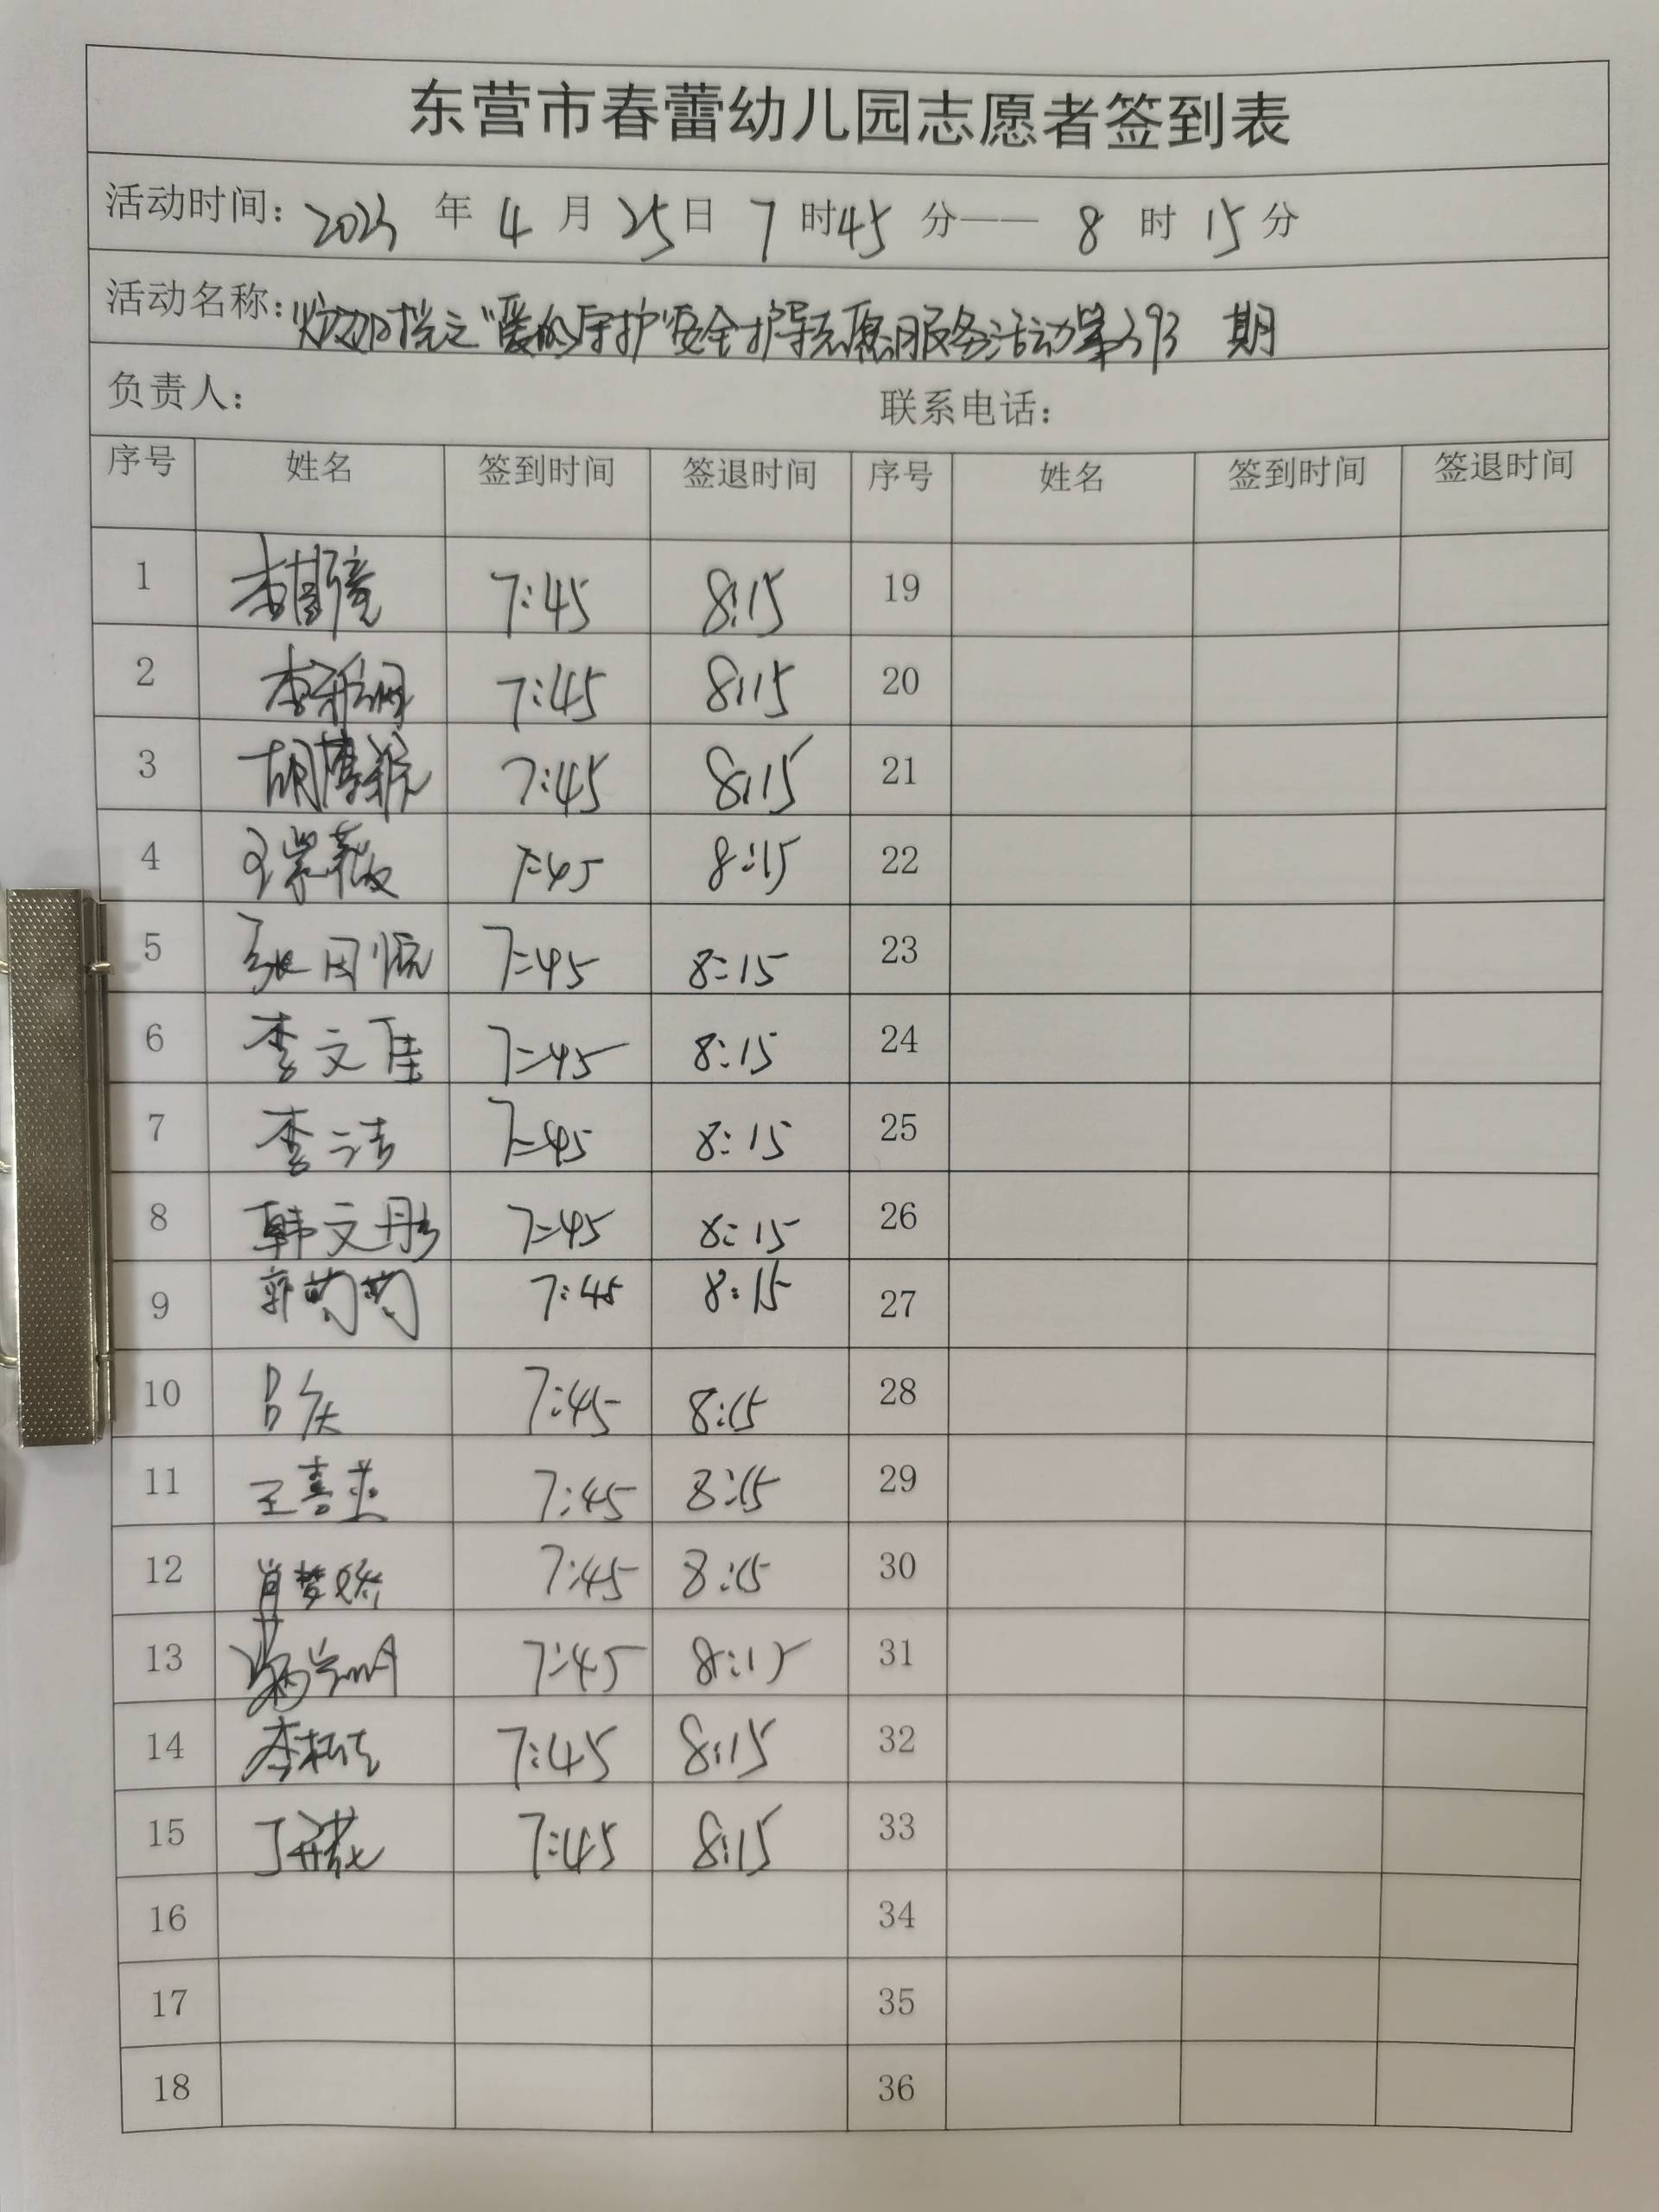 东营市春蕾幼儿园志愿者签到表
活动时间：2023 年 4 月 25 日 7 时 45 分—— 8 时 15 分
活动名称：之"爱的守护"安全护导志愿服务活动第393 期
负责人： 联系电话：
序号 姓名 签到时间 签退时间 序号 姓名 签到时间 签退时间
1 7:45 8:15 19
2 7:45 8:15 20
3 7:45 8:15 21
4 王紫薇 7:45 8:15 22
5 7:45 8:15 23
6 李文佳 7:45 8:15 24
7 李洁 7:45 8:15 25
8 韩文彤 7:45 8:15 26
9 郭茜茜 7:45 8:15 27
10 7:45 8:15 28
11 7:45 8:15 29
12 肖梦娇 7:45 8:15 30
13 7:45 8:15 31
14 7:45 8:15 32
15 7:45 8:15 33
16 34
17 35
18 36